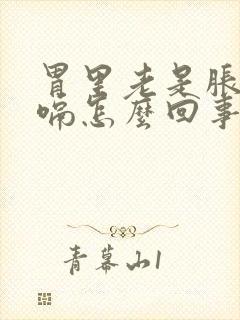 胃里老是胀
喘怎麽回事
青幕山1